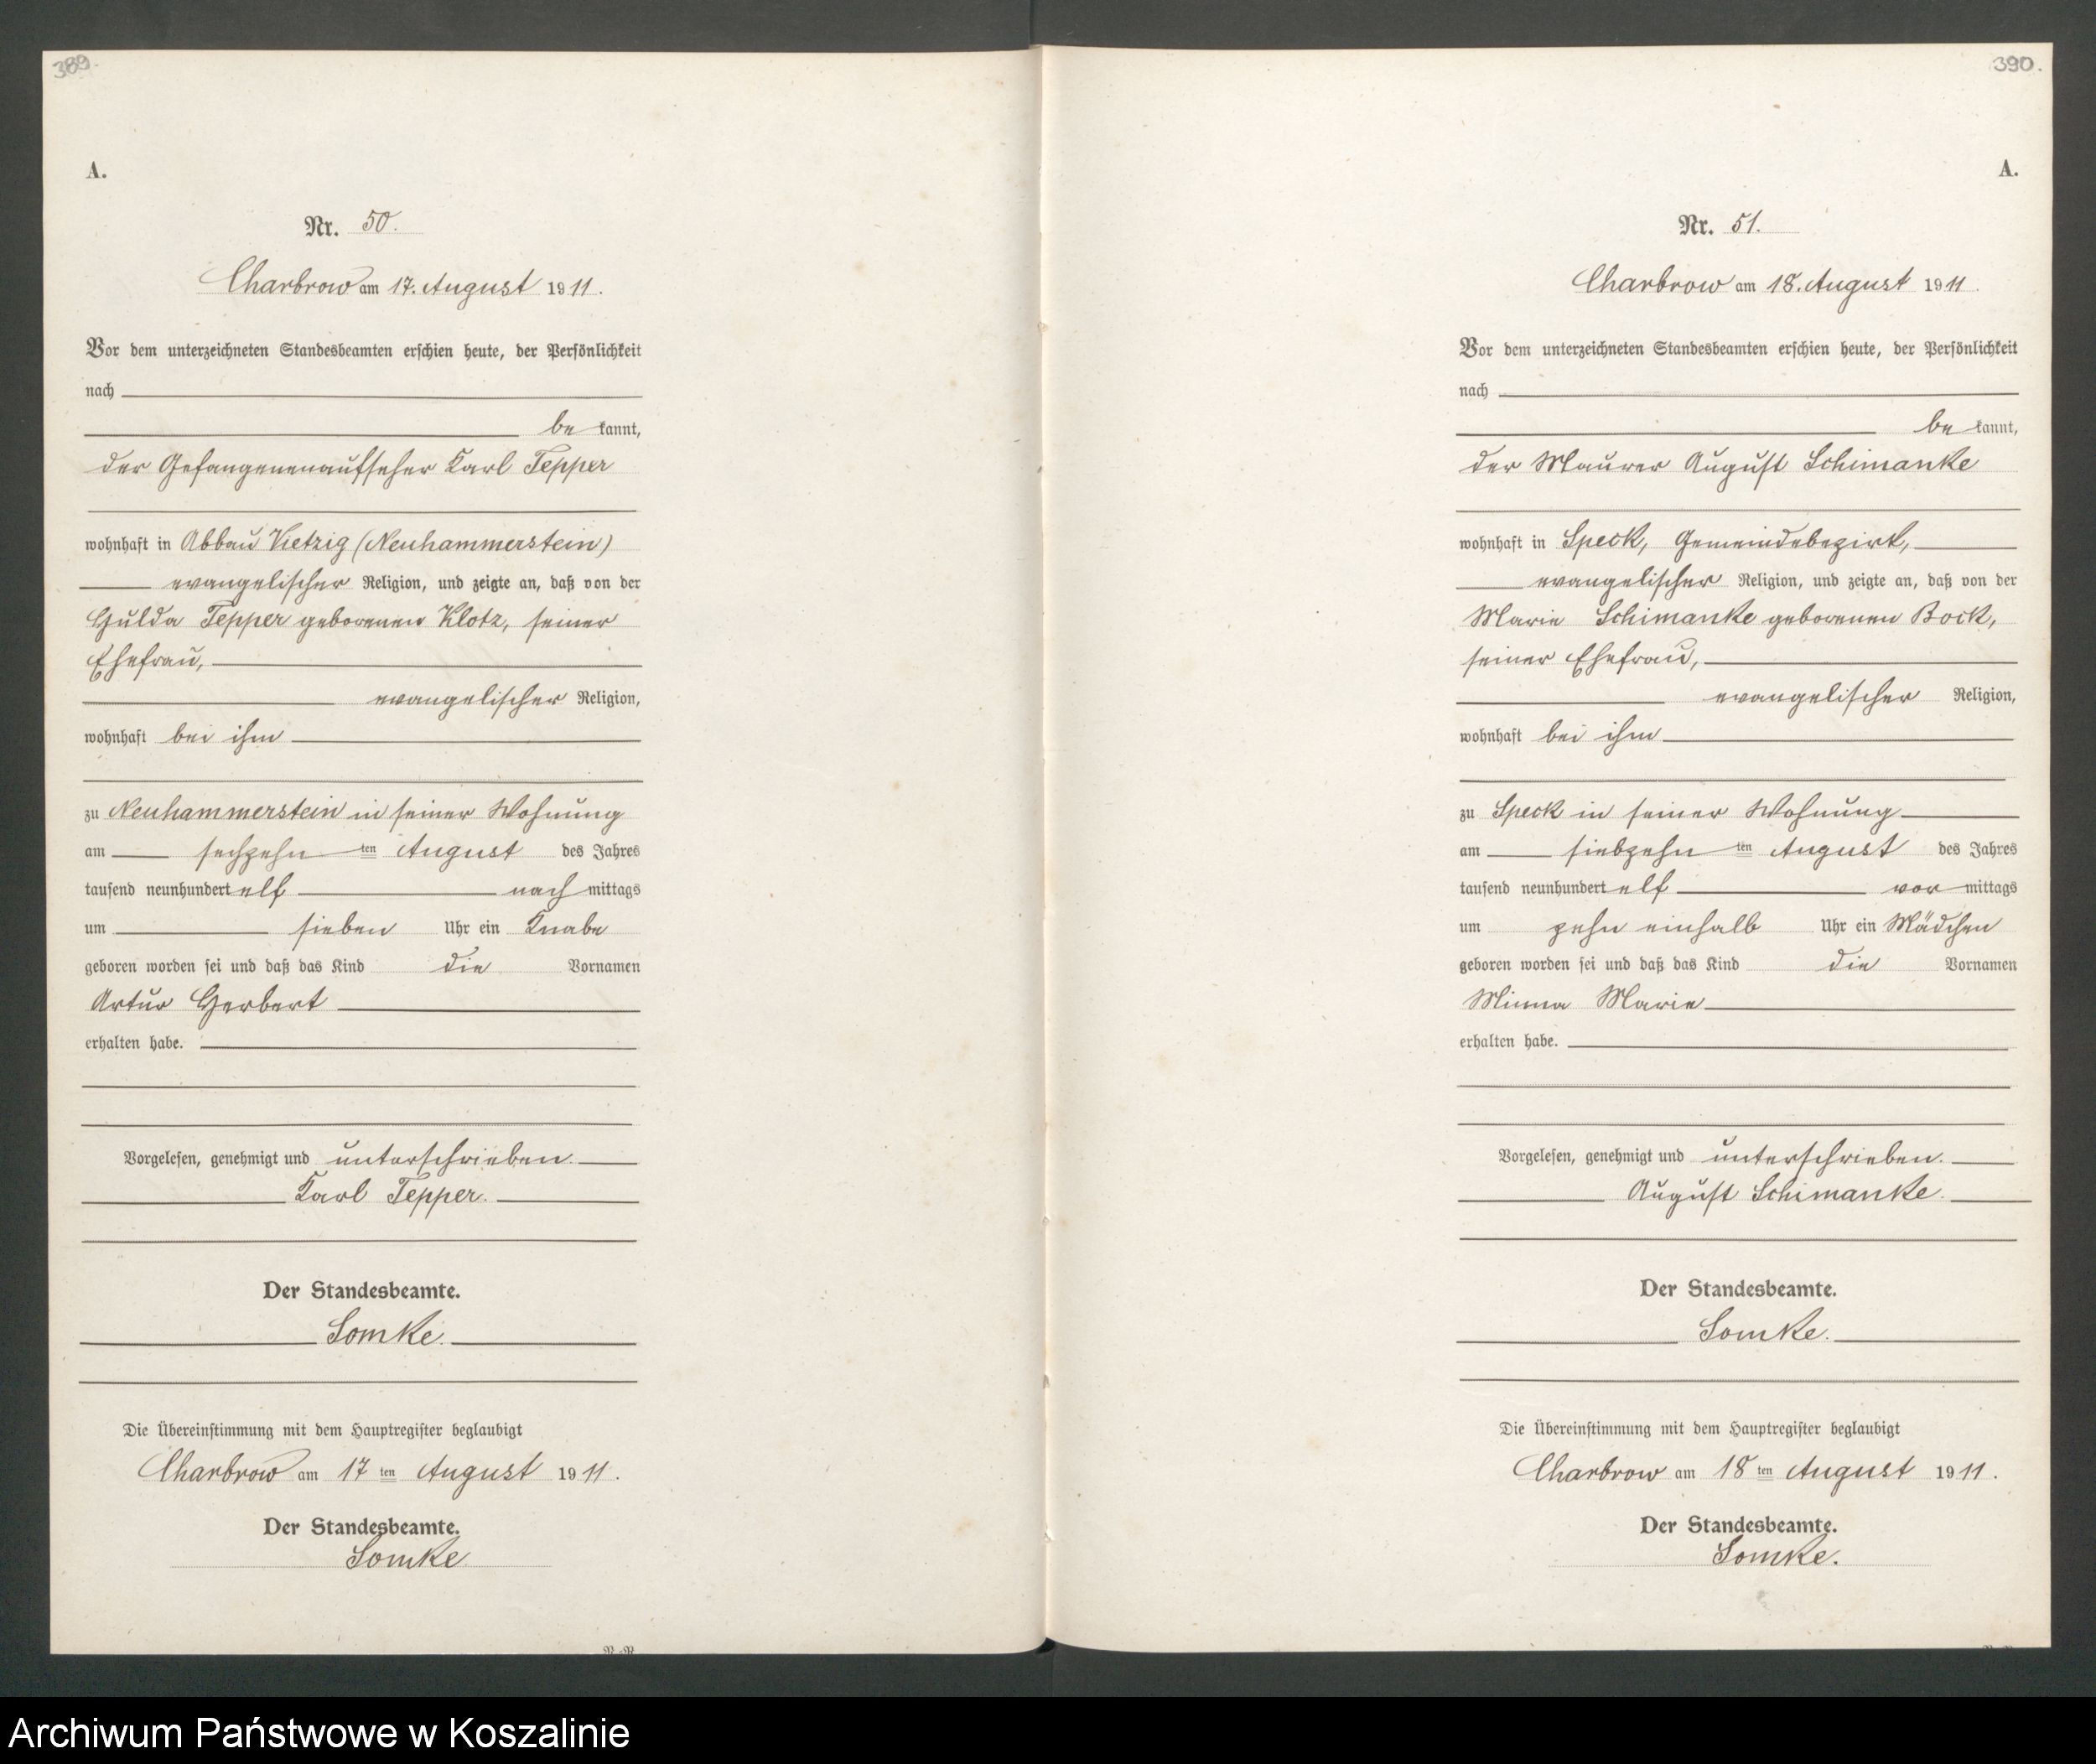 389.
A.
Nr. 50.
Charbrow am 17. August 1911.
Vor dem unterzeichneten Standesbeamten erschien heute, der Persönlichkeit
nach
be kannt,
der Gefangenenaufseher Karl Tepper
wohnhaft in Abbau Vietzig (Neuhammerstein)
evangelischer Religion, und zeigte an, daß von der
Hulda Tepper geborenen Klotz, seiner
Ehefrau,
evangelischer Religion,
wohnhaft bei ihm
zu Neuhammerstein in seiner Wohnung
am sechzehn ten August des Jahres
tausend neunhundert elf nach mittags
um sieben Uhr ein Knabe
geboren worden sei und daß das Kind die Vornamen
Artur Herbert
erhalten habe.
Vorgelesen, genehmigt und unterschrieben.
Karl Tepper.
Der Standesbeamte.
Somke.
Die Übereinstimmung mit dem Hauptregister beglaubigt
Charbrow am 17 ten August 1911.
Der Standesbeamte.
Somke
390.
A.
Nr. 51.
Charbrow am 18. August 1911.
Vor dem unterzeichneten Standesbeamten erschien heute, der Persönlichkeit
nach
be kannt,
der Maurer August Schimanke
wohnhaft in Speck, Gemeindebezirk,
evangelischer Religion, und zeigte an, daß von der
Marie Schimanke geborenen Bock,
seiner Ehefrau,
evangelischer Religion,
wohnhaft bei ihm
zu Speck in seiner Wohnung
am siebzehn ten August des Jahres
tausend neunhundert elf vor mittags
um zehn einhalb Uhr ein Mädchen
geboren worden sei und daß das Kind die Vornamen
Minna Marie
erhalten habe.
Vorgelesen, genehmigt und unterschrieben.
August Schimanke.
Der Standesbeamte.
Somke.
Die Übereinstimmung mit dem Hauptregister beglaubigt
Charbrow am 18 ten August 1911.
Der Standesbeamte.
Somke.
Archiwum Państwowe w Koszalinie